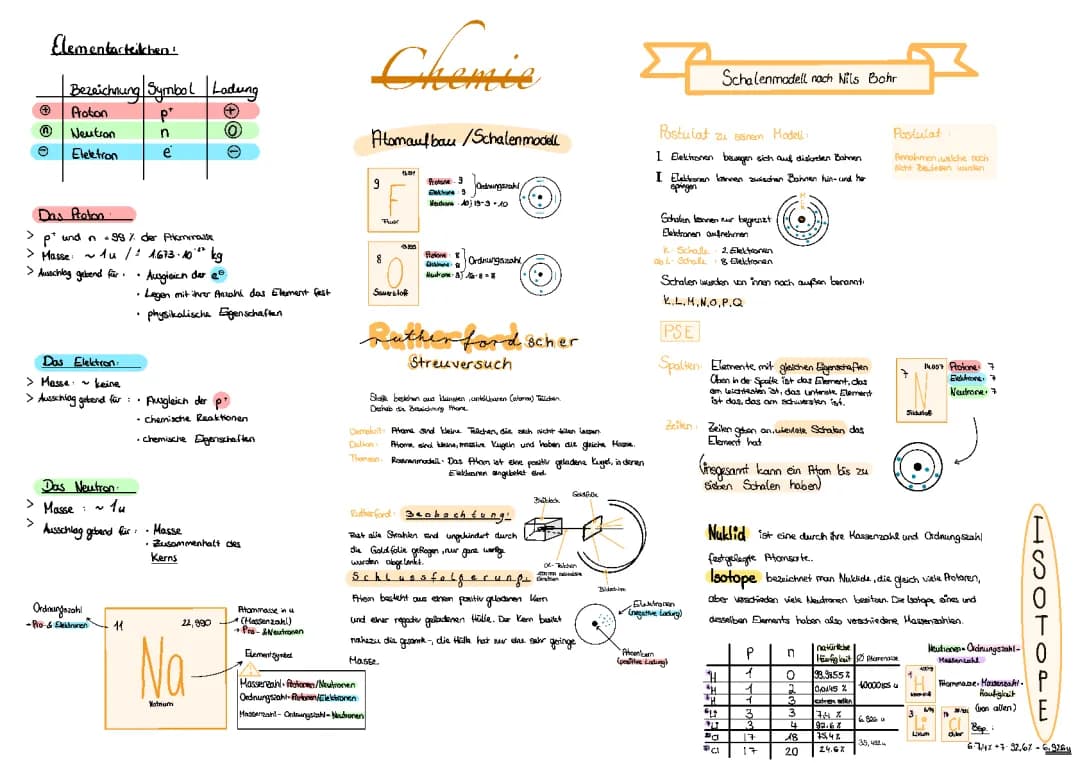 Elementarteilchen:
Bezeichnung Symbol Ladung
⊕ Proton p⁺ ⊕
ⓝ Neutron n ⓞ
⊖ Elektron e⁻ ⊖
Das Proton:
> p⁺ und n = 99 % der Atommasse
> Masse: ~ 1u / ≙ 1.673 · 10⁻²⁷ kg
> Ausschlag gebend für: · Ausgleich der e⊖
· Legen mit ihrer Anzahl das Element fest
· physikalische Eigenschaften
Das Elektron:
> Masse: ~ keine
> Ausschlag gebend für: · Ausgleich der p⁺
· chemische Reaktionen
· chemische Eigenschaften
Das Neutron:
> Masse: ~ 1u
> Ausschlag gebend für: · Masse
· Zusammenhalt des
Kerns
Ordnungszahl
= Pro- & Elektronen
11 22,990
Na
Natrium
Atommasse in u
(Massenzahl)
= Pro- & Neutronen
Elementsymbol
Massenzahl = Protonen/Neutronen
Ordnungszahl = Protonen/Elektronen
Massenzahl - Ordnungszahl = Neutronen
Chemie
Atomaufbau / Schalenmodell
9
F
Fluor
Protone: 9
Elektrone: 9
Ordnungszahl
Neutrone: 10} 19-9 = 10
8
O
Sauerstoff
Protone: 8
Elektrone: 8
Ordnungszahl
Neutrone: 8} 16-8 = 8
Rutherfordscher
Streuversuch
Stoffe bestehen aus kleinsten, unteilbaren (atomos) Teilchen.
Deshalb die Bezeichnung Atome.
Demokrit: Atome sind kleine Teilchen, die sich nicht teilen lassen.
Dalton: Atome sind kleine, massive Kugeln und haben die gleiche Masse.
Thomson: Rosinenmodell - Das Atom ist eine positiv geladene Kugel, in deren
Elektronen eingebettet sind.
Rutherford: Beobachtung:
Fast alle Strahlen sind ungehindert durch
die Goldfolie geflogen, nur ganz wenige
wurden abgelenkt.
Schlussfolgerung:
Atom besteht aus einem positiv geladenen Kern
und einer negativ geladenen Hülle. Der Kern besitzt
nahezu die gesamte-, die Hülle hat nur eine sehr geringe
Masse.
Bleiblock
Goldfolie
α-Teilchen
Strahlen
Bildschirm
Elektronen
(negative Ladung)
Atomkern
(positive Ladung)
Schalenmodell nach Nils Bohr
Postulat zu seinem Modell:
I Elektronen bewegen sich auf diskreten Bahnen
II Elektronen können zwischen Bahnen hin- und her
springen
Postulat:
Annahmen, welche noch
nicht bewiesen wurden
Schalen können nur begrenzt
Elektronen aufnehmen
K-Schale: 2 Elektronen
ab L-Schale: 8 Elektronen
K
L
Schalen werden von innen nach außen benannt:
K, L, M, N, O, P, Q
PSE
Spalten: Elemente mit gleichen Eigenschaften
Oben in der Spalte ist das Element, das
am leichtesten ist, das unterste Element
ist das, das am schwersten ist.
Zeilen: Zeilen geben an, wieviele Schalen das
Element hat
(insgesamt kann ein Atom bis zu
sieben Schalen haben)
7 14.007
N
Stickstoff
Protone: 7
Elektrone: 7
Neutrone: 7
Nuklid ist eine durch ihre Massenzahl und Ordnungszahl
festgelegte Atomsorte.
Isotope bezeichnet man Nuklide, die gleich viele Protonen,
aber verschieden viele Neutronen besitzen. Die Isotope eines und
desselben Elements haben also verschiedene Massenzahlen.
P n natürliche Häufigkeit Ø Atommasse
¹H 1 0 99.9855 %
²H 1 2 0,0145 %
³H 1 3 extrem selten
⁶Li 3 3 7,4 % 6.926 u
⁷Li 3 4 92.6 %
³⁵Cl 17 18 75,4 %
³⁷Cl 17 20 24.6 %
Neutronen = Ordnungszahl -
Massenzahl
Atommasse = Massenzahl ·
Häufigkeit
(von allen)
1
H
Wasserstoff
3
Li
Lithium
17
Cl
Chlor
Bsp.:
6 · 7,4% + 7 · 92,6% = 6,926u
ISOTOPE